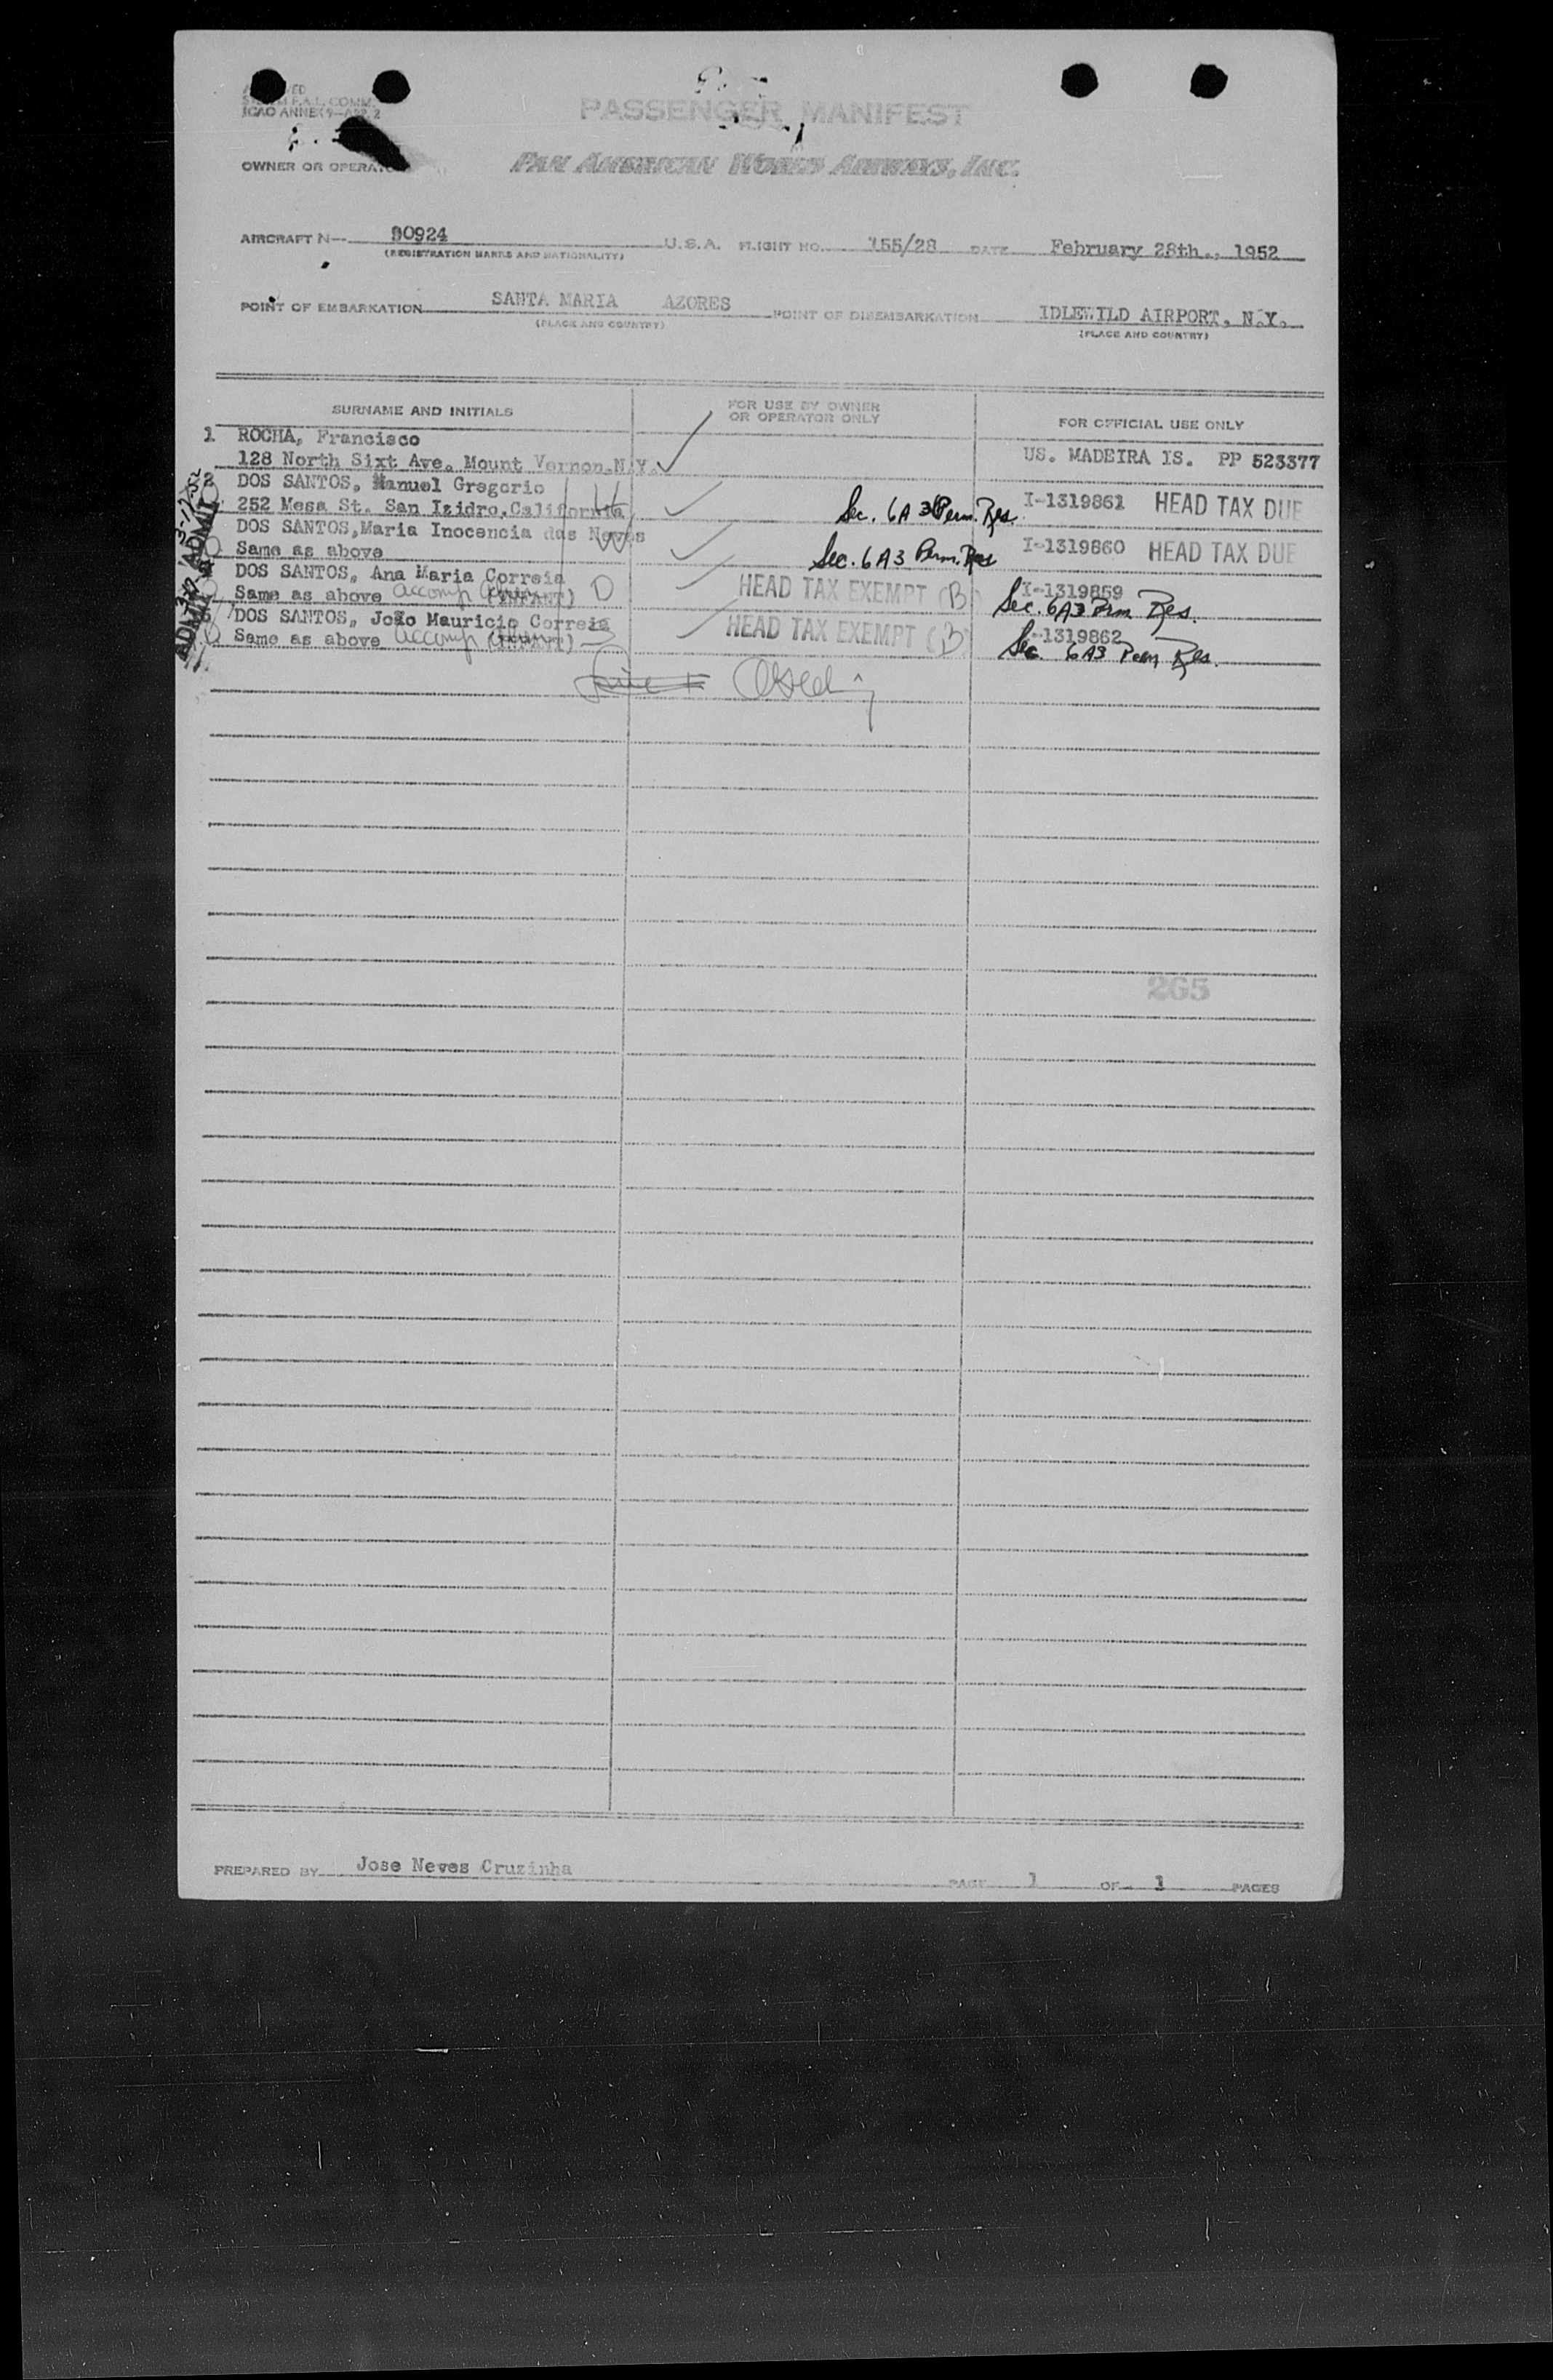 PASSENGER MANIFEST
ICAO ANNEX 9—APP. 2
OWNER OR OPERATOR
PAN AMERICAN WORLD AIRWAYS, INC.
AIRCRAFT N— 90924 U.S.A. FLIGHT NO. 155/28 DATE February 28th., 1952
(REGISTRATION MARKS AND NATIONALITY)
POINT OF EMBARKATION SANTA MARIA AZORES POINT OF DISEMBARKATION IDLEWILD AIRPORT, N.Y.
(PLACE AND COUNTRY) (PLACE AND COUNTRY)
SURNAME AND INITIALS FOR USE BY OWNER OR OPERATOR ONLY FOR OFFICIAL USE ONLY
1 ROCHA, Francisco
128 North Sixt Ave. Mount Vernon.N.Y. US. MADEIRA IS. PP 523377
DOS SANTOS, Manuel Gregorio
252 Mesa St. San Izidro.California Sec. 6A3 Perm. Res. I-1319861 HEAD TAX DUE
DOS SANTOS,Maria Inocencia das Neves
Same as above Sec. 6A3 Perm. Res I-1319860 HEAD TAX DUE
DOS SANTOS, Ana Maria Correia
Same as above accomp (INFANT) D HEAD TAX EXEMPT (B) I-1319859
Sec. 6A3 Perm Res.
DOS SANTOS, João Mauricio Correia
Same as above accomp (INFANT) HEAD TAX EXEMPT (B) I-1319862
Sec. 6A3 Perm Res.
265
PREPARED BY Jose Neves Cruzinha PAGE 1 OF 1 PAGES